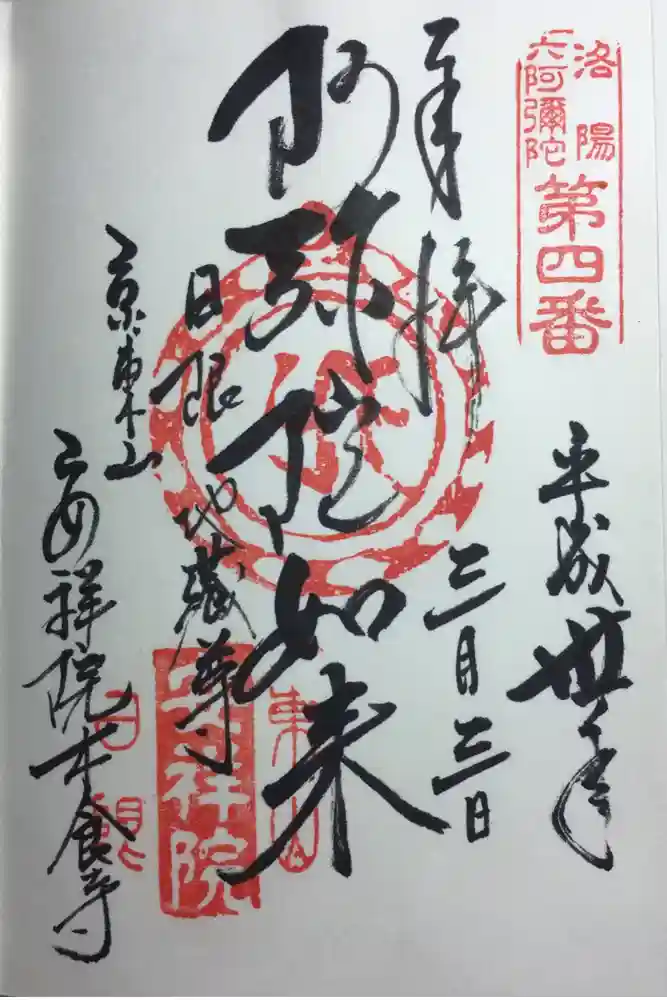 洛陽
六阿彌陀
第四番
平成丗年
三月三日
奉拝
阿弥陀如来
日限
地蔵尊
京東山
安祥院木食寺
安祥院
東山
日観